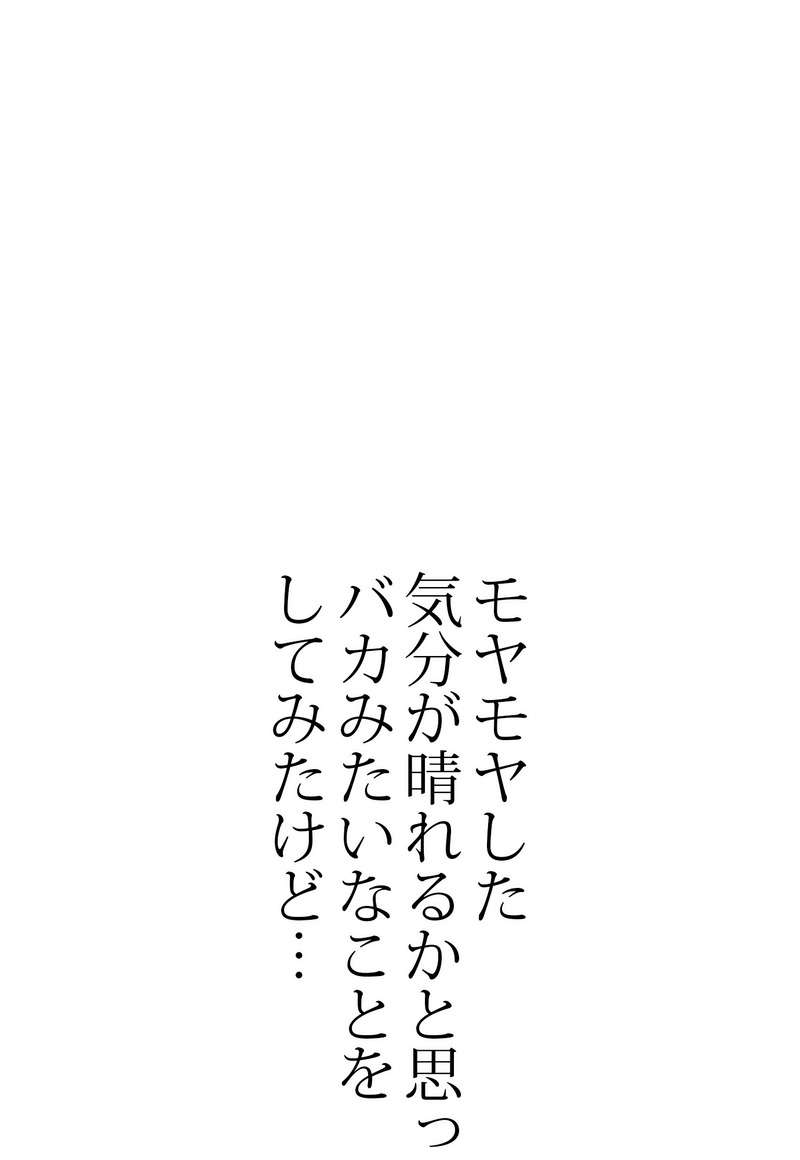 モヤモヤした
気分が晴れるかと思っ
バカみたいなことを
してみたけど…